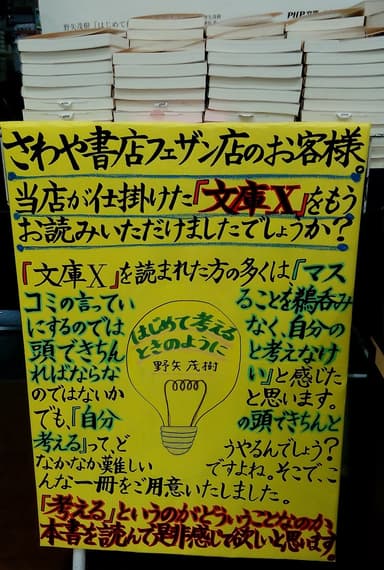 野矢茂樹『はじめて
さわや書店フェザン店のお客様。
当店が仕掛けた『文庫X』をもう
お読みいただけましたでしょうか?
『文庫X』を読まれた方の多くは『マス
コミの言ってい ることを鵜呑み
にするのでは なく、自分の
頭できちん と考えなけ
ればならな い』と感じた
のではないか と思います。
でも、『自分 の頭できちんと
考える』って、ど うやるんでしょう?
なかなか難しい ですよね。そこで、こ
んな一冊をご用意いたしました。
はじめて考える
ときのように
野矢茂樹
『考える』というのがどういうことなのか、
本書を読んで是非感じて欲しいと思います。